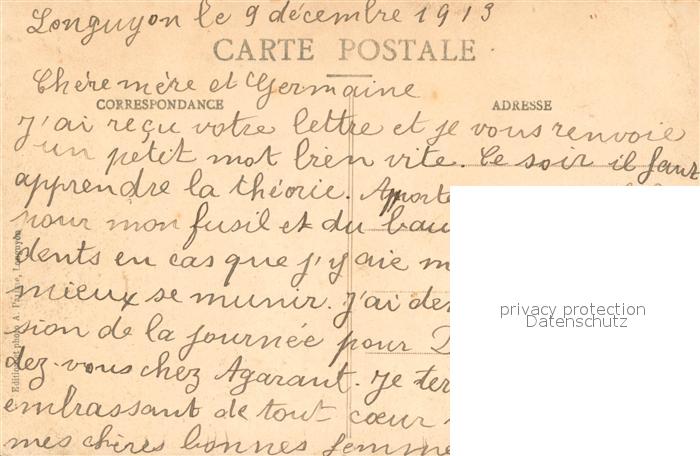 Longuyon le 9 décembre 1913
CARTE POSTALE
Chère mère et Germaine
CORRESPONDANCE
ADRESSE
J'ai reçu votre lettre et je vous renvoie
un petit mot bien vite. Ce soir il faut
apprendre la théorie.
pour mon fusil et du
dents en cas que j'y aie
mieux se munir. J'ai
sion de la journée pour
dez-vous chez Agarant. Je
embrassant de tout cœur
mes chères bonnes
privacy protection
Datenschutz